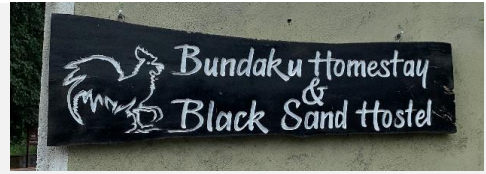 Bundaku Homestay
&
Black Sand Hostel